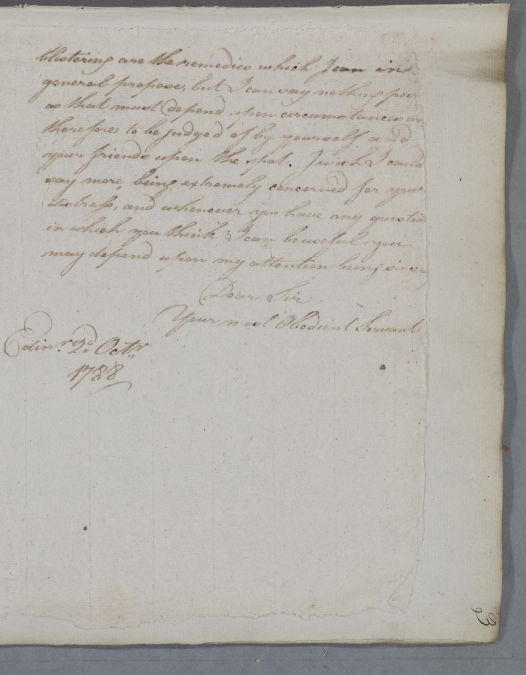 blistering are the remedies which I can in
general propose, but I can say nothing
as that must depend upon circumstances
therefore to be judged of by yourself and
your friends upon the spot. I wish I could
say more, being extremely concerned for your
distress, and whenever you have any questio
in which you think I can be useful you
may depend upon my attention being
Dear Sir
Your most Obedient Servant
Edinr. 2d. Octr.
1788